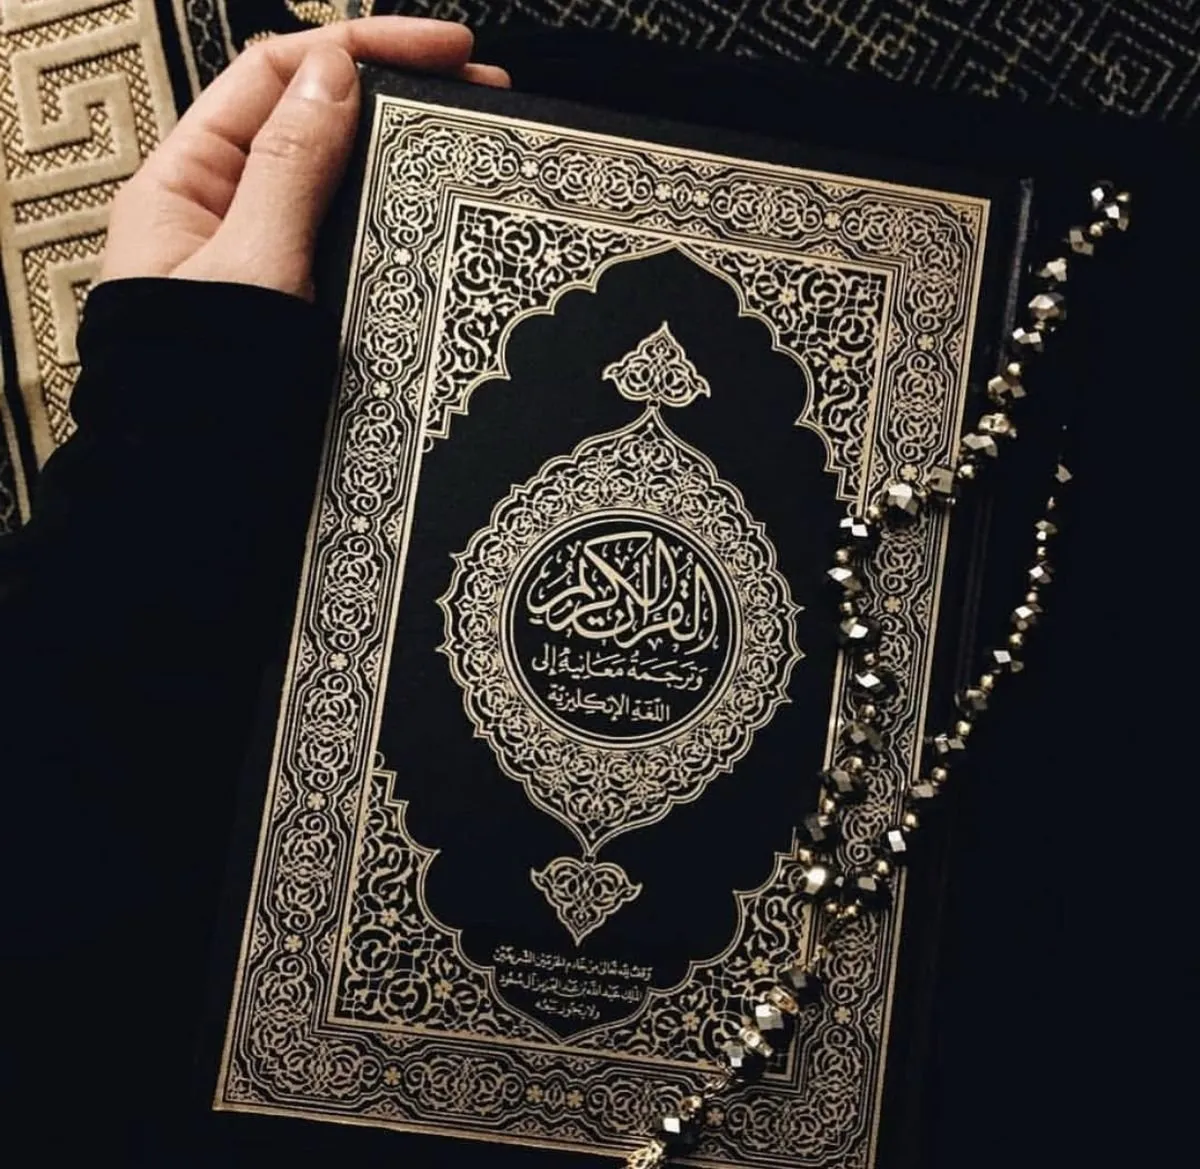 القُرْآنُ الكَرِيمُ
وَتَرجَمَةُ مَعَانِيهِ إلى
اللّغَةِ الإنكليزيّة
وَقفٌ لِلّهِ تَعَالى مِن خَادِم الحَرَمَين الشّريفَين
الملِك عَبدالله بن عَبدالعزيز آل سُعُود
ولا يَجُوز بَيعُه